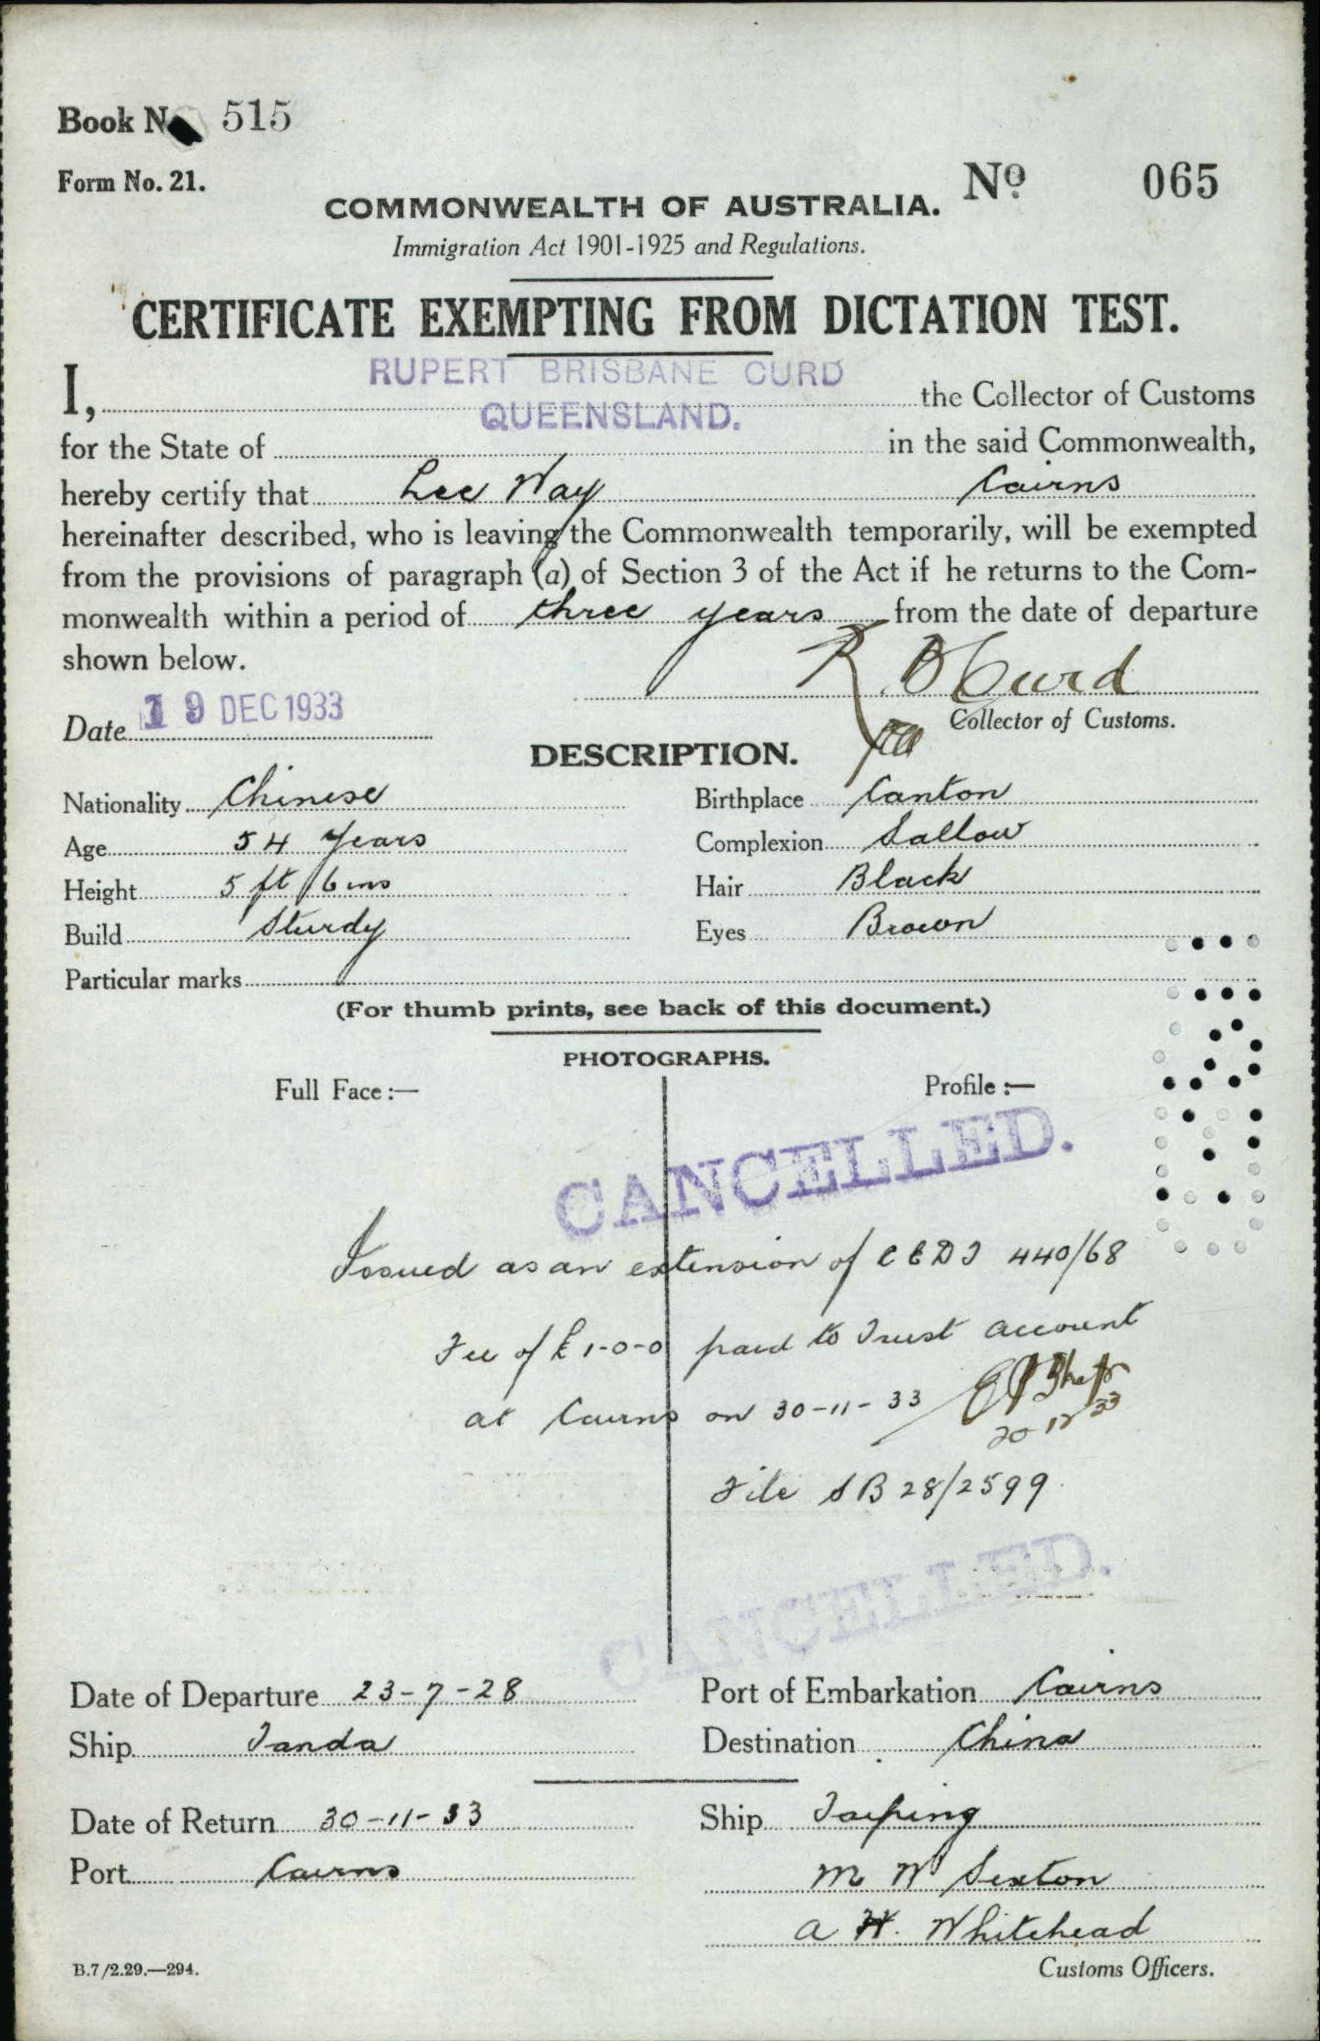 Book No. 515
Form No. 21.
No. 065
COMMONWEALTH OF AUSTRALIA.
Immigration Act 1901-1925 and Regulations.
CERTIFICATE EXEMPTING FROM DICTATION TEST.
I, RUPERT BRISBANE CURD the Collector of Customs
for the State of QUEENSLAND. in the said Commonwealth,
hereby certify that Lee Way Cairns
hereinafter described, who is leaving the Commonwealth temporarily, will be exempted
from the provisions of paragraph (a) of Section 3 of the Act if he returns to the Com-
monwealth within a period of three years from the date of departure
shown below.
R B Curd
Date 19 DEC 1933
Collector of Customs.
DESCRIPTION.
Nationality Chinese Birthplace Canton
Age 54 Years Complexion Sallow
Height 5 ft 6 ins Hair Black
Build Sturdy Eyes Brown
Particular marks
(For thumb prints, see back of this document.)
PHOTOGRAPHS.
Full Face:— Profile:—
CANCELLED.
Issued as an extension of CEDT 440/68
Fee of £1-0-0 paid to Trust account
at Cairns on 30-11-33
20 12 33
File SB 28/2599
CANCELLED.
Date of Departure 23-7-28 Port of Embarkation Cairns
Ship Tanda Destination China
Date of Return 30-11-33 Ship Taiping
Port Cairns M W Sexton
A H. Whitehead
B.7/2.29.—294. Customs Officers.